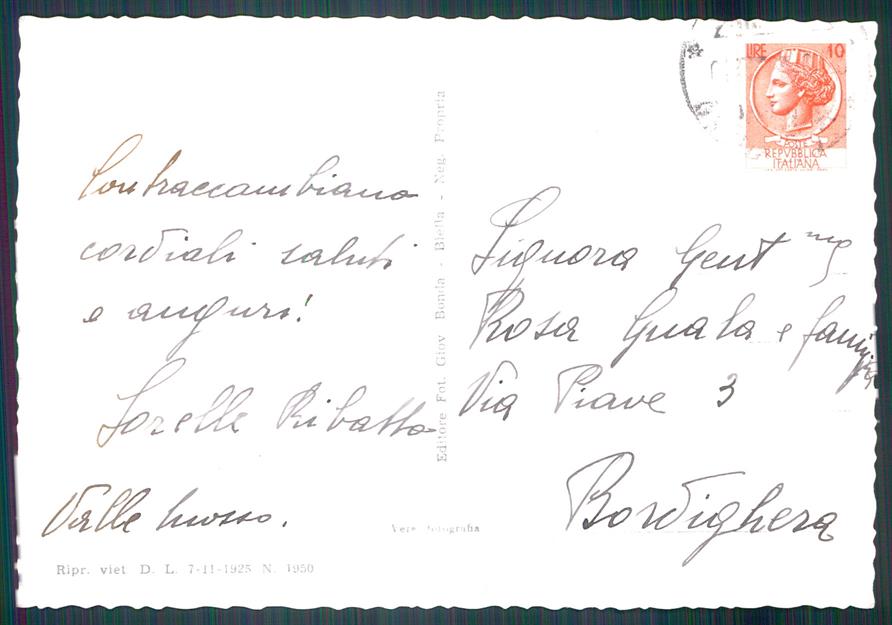 Contraccambiano
cordiali saluti
e auguri!
Sorelle Ribatto
Valle Mosso.
Ripr. viet D. L. 7-11-1925 N. 1950
Editore Fot. Giov Bonda - Biella - Neg. Propria
Vera fotografia
LIRE 10
POSTE
REPVBBLICA
ITALIANA
Signora Gent ma
Rosa Guala e famiglia
Via Piave 3
Bordighera